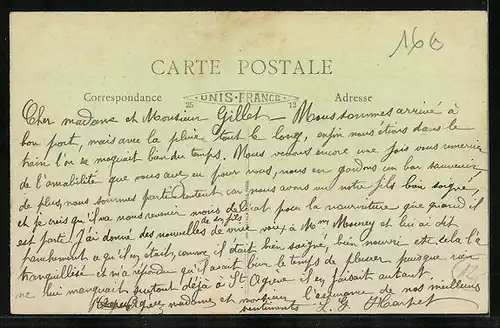 160
CARTE POSTALE
Correspondance 25 UNIS-FRANCE 13 Adresse
Cher madame et Monsieur Gillet - Nous sommes arrivé à
bon port, mais avec la pluie tout le long, enfin nous étions dans le
train l'on se moquait bien du temps. Nous venons encore une fois vous remercier
de l'amabilité que vous avez eu pour nous, nous en gardons un bon souvenir
de plus, nous sommes parti content car nous avons vu notre fils bien soigné,
et je crois qu'il va nous revenir moins délicat pour la nourriture que quand il
est parti. J'ai donné des nouvelles de vive voix à Mme Mourey et lui ai dit
de son fils
franchement ce qu'il en était, comme il était bien soigné, bien nourri et cela l'a
tranquillisé et m'a répondu qu'il avait bien le temps de pleurer puisque rien
ne lui manquait surtout déjà à St il en faisait autant.
madame et monsieur l'assurance de nos meilleurs
sentiments L. G.
12